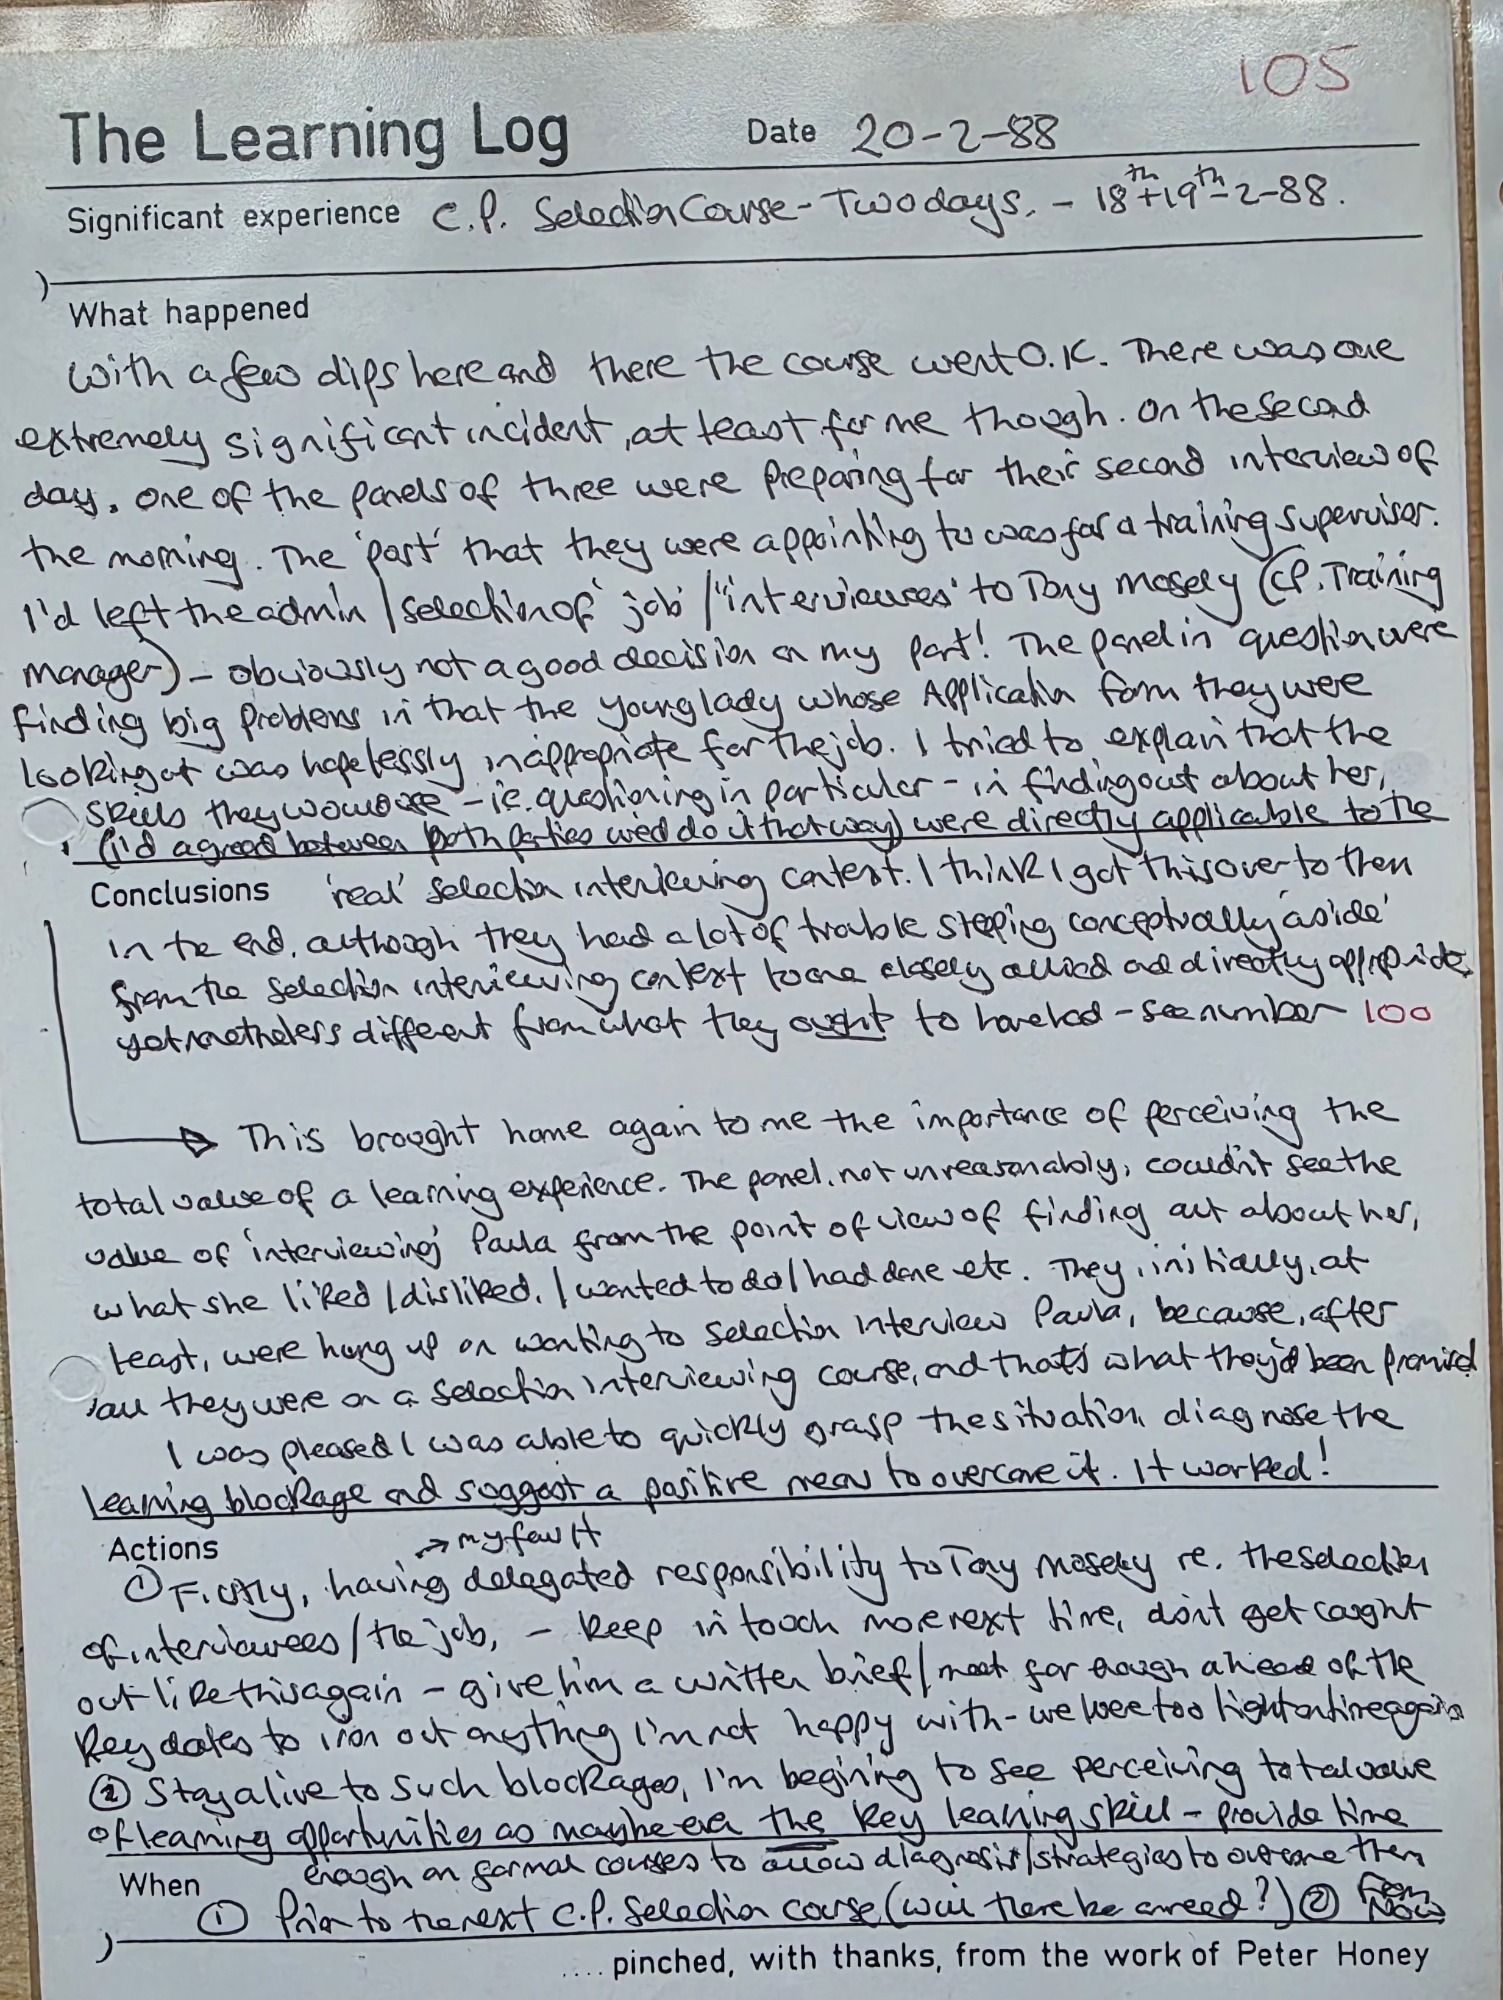 105
The Learning Log Date 20-2-88
Significant experience C.P. Selection Course - Two days. - 18th + 19th - 2-88.
What happened
With a few dips here and there the course went O.K. There was one
extremely significant incident, at least for me though. On the second
day, one of the panels of three were preparing for their second interview of
the morning. The 'post' that they were appointing to was for a training supervisor.
I'd left the admin / selection of 'job' / 'interviewees' to Tony Mosely (C.P. Training
Manager) - obviously not a good decision on my part! The panel in question were
finding big problems in that the young lady whose Application form they were
looking at was hopelessly inappropriate for the job. I tried to explain that the
skills they would use - i.e. questioning in particular - in finding out about her,
(I'd agreed between both parties we'd do it that way) were directly applicable to the
Conclusions 'real' selection interviewing context. I think I got this over to them
in the end, although they had a lot of trouble stepping conceptually 'aside'
from the selection interviewing context to one closely allied and directly appropriate,
yet nonetheless different from what they ought to have had - see number 100
This brought home again to me the importance of perceiving the
total value of a learning experience. The panel, not unreasonably, couldn't see the
value of 'interviewing' Paula from the point of view of finding out about her,
what she liked / disliked, / wanted to do / had done etc. They, initially, at
least, were hung up on wanting to selection interview Paula, because, after
all they were on a selection interviewing course, and that's what they'd been promised
I was pleased I was able to quickly grasp the situation, diagnose the
learning blockage and suggest a positive means to overcome it. It worked!
Actions → my fault
① Firstly, having delegated responsibility to Tony Mosely re. the selection
of interviewees / the job, - keep in touch more next time, don't get caught
out like this again - give him a written brief / meet far enough ahead of the
key dates to iron out anything I'm not happy with - we were too tight on time again
② Stay alive to such blockages, I'm begining to see perceiving total value
of learning opportunities as maybe even the key learning skill - provide time
enough on formal courses to allow diagnosis / strategies to overcome them
When ① Prior to the next C.P. Selection course (will there be a need?) ② From Now
.... pinched, with thanks, from the work of Peter Honey